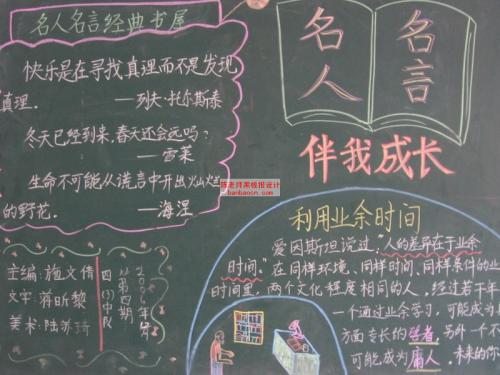 名人名言经典书屋
快乐是在寻找真理而不是发现
真理.
——列夫·托尔斯泰
冬天已经到来,春天还会远吗?
——雪莱
生命不可能从谎言中开出火山
的野花.
——海涅
名人
名言
伴我成长
陈老师黑板报设计
banbaocn.com
利用业余时间
爱因斯坦说过:"人的差异在于业余
时间."在同样环境、同样时间、同样条件的业
时间里,两个文化程度相同的人,经过若干年
一个通过业余学习,可能成为
方面专长的学者,另外一个不
可能成为庸人.未来的你
主编:施文倩
文字:蒋昕黎
美术:陆苏琦
四(3)中队
第四期